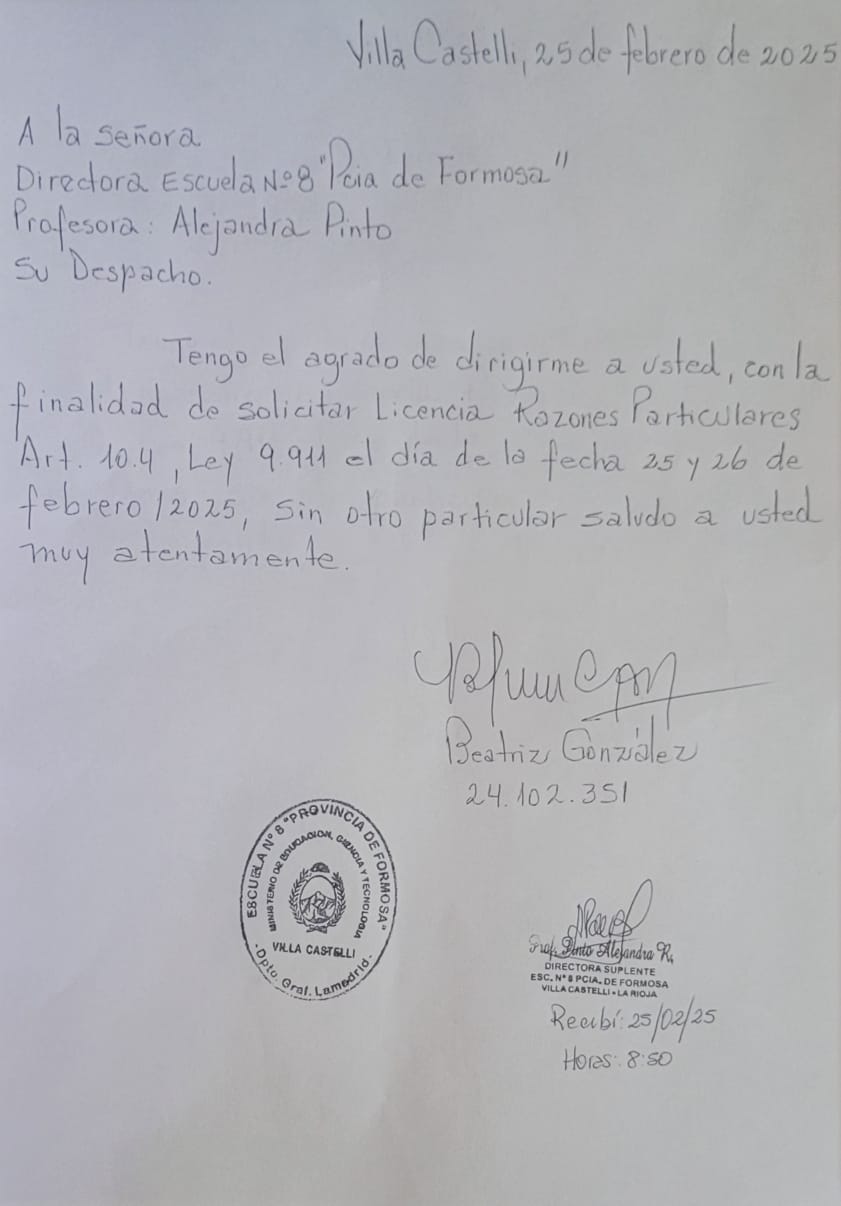 Villa Castelli, 25 de febrero de 2025
A la señora
Directora Escuela Nº 8 "Pcia de Formosa"
Profesora: Alejandra Pinto
Su Despacho.
Tengo el agrado de dirigirme a usted, con la
finalidad de solicitar Licencia Razones Particulares
Art. 10.4, Ley 9.911 el día de la fecha 25 y 26 de
febrero/2025, sin otro particular saludo a usted
muy atentamente.
Beatriz González
24.102.351
ESCUELA Nº 8 "PROVINCIA DE FORMOSA"
MINISTERIO DE EDUCACION, CIENCIA Y TECNOLOGIA
VILLA CASTELLI
- Dpto. Gral. Lamadrid -
Prof. Pinto Alejandra R.
DIRECTORA SUPLENTE
ESC. Nº 8 PCIA. DE FORMOSA
VILLA CASTELLI - LA RIOJA
Recibí: 25/02/25
Horas: 8:50